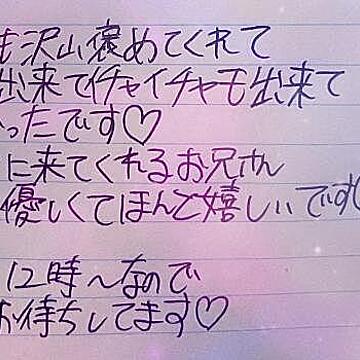 も沢山褒めてくれて
出来てイチャイチャも出来て
ったです♡
に来てくれるお兄さん
優しくてほんと嬉しいです
12時〜なので
お待ちしてます♡